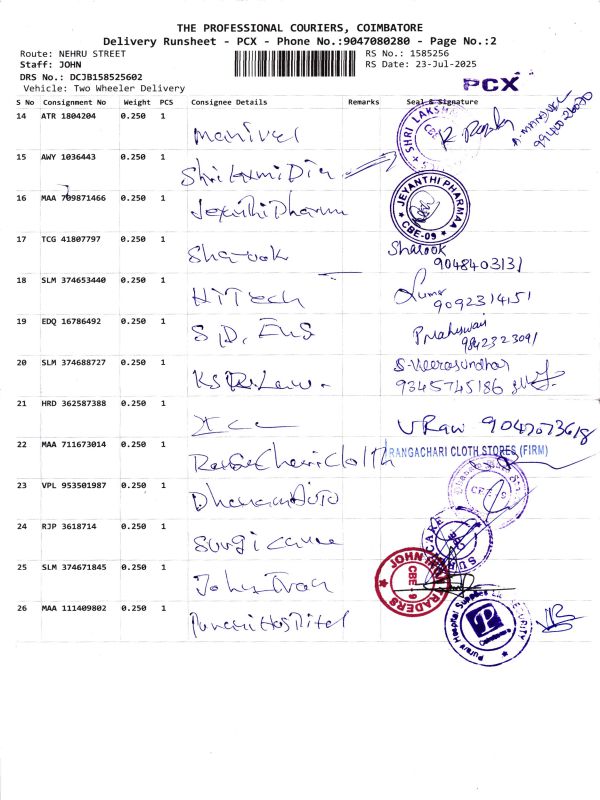 THE PROFESSIONAL COURIERS, COIMBATORE
Delivery Runsheet - PCX - Phone No.:9047080280 - Page No.:2
Route: NEHRU STREET
RS No.: 1585256
Staff: JOHN
RS Date: 23-Jul-2025
DRS No.: DCJB158525602
Vehicle: Two Wheeler Delivery
PCX
S No Consignment No Weight PCS Consignee Details Remarks Seal & Signature
14 ATR 1804204 0.250 1 Manivel
15 AWY 1036443 0.250 1 Shri Laxmi Dia
SHRI LAKSH
16 MAA 709871466 0.250 1
JEYANTHI PHARMAA
CBE-09
17 TCG 41807797 0.250 1 Sharook Sharook
9048403131
18 SLM 374653440 0.250 1 HiTech Kumar
9092314151
19 EDQ 16786492 0.250 1 S.D. Eng P.Maheswari
9842323091
20 SLM 374688727 0.250 1 KSR Law. S-Veerasundhar
9345745186
21 HRD 362587388 0.250 1 Icc
22 MAA 711673014 0.250 1
RANGACHARI CLOTH STORES (FIRM)
23 VPL 953501987 0.250 1 Dhanam Auto
24 RJP 3618714 0.250 1 Surgi Caree
SURGI CARE
25 SLM 374671845 0.250 1 John Ivan
JOHN IVAN TRADERS
CBE - 9
26 MAA 111409802 0.250 1 Purani Hospital
Purani Hospital Supplies
SECURITY